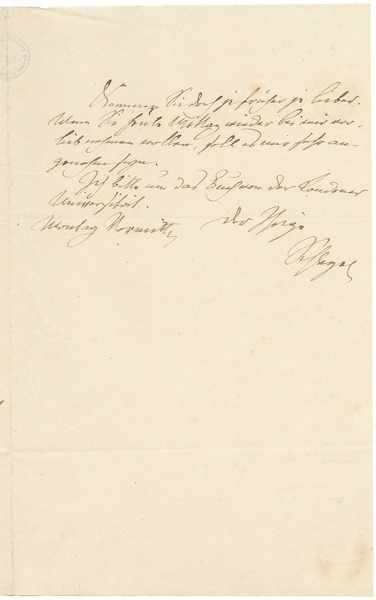 Kommen Sie doch je früher je lieber.
Wenn Sie heute Mittag wieder bei mir vor-
lieb nehmen wollen, soll es mir sehr an-
genehm seyn.
Ich bitte um das Buch von der Londoner
Universität.
Montag Vormitt. der Ihrige
Schlegel